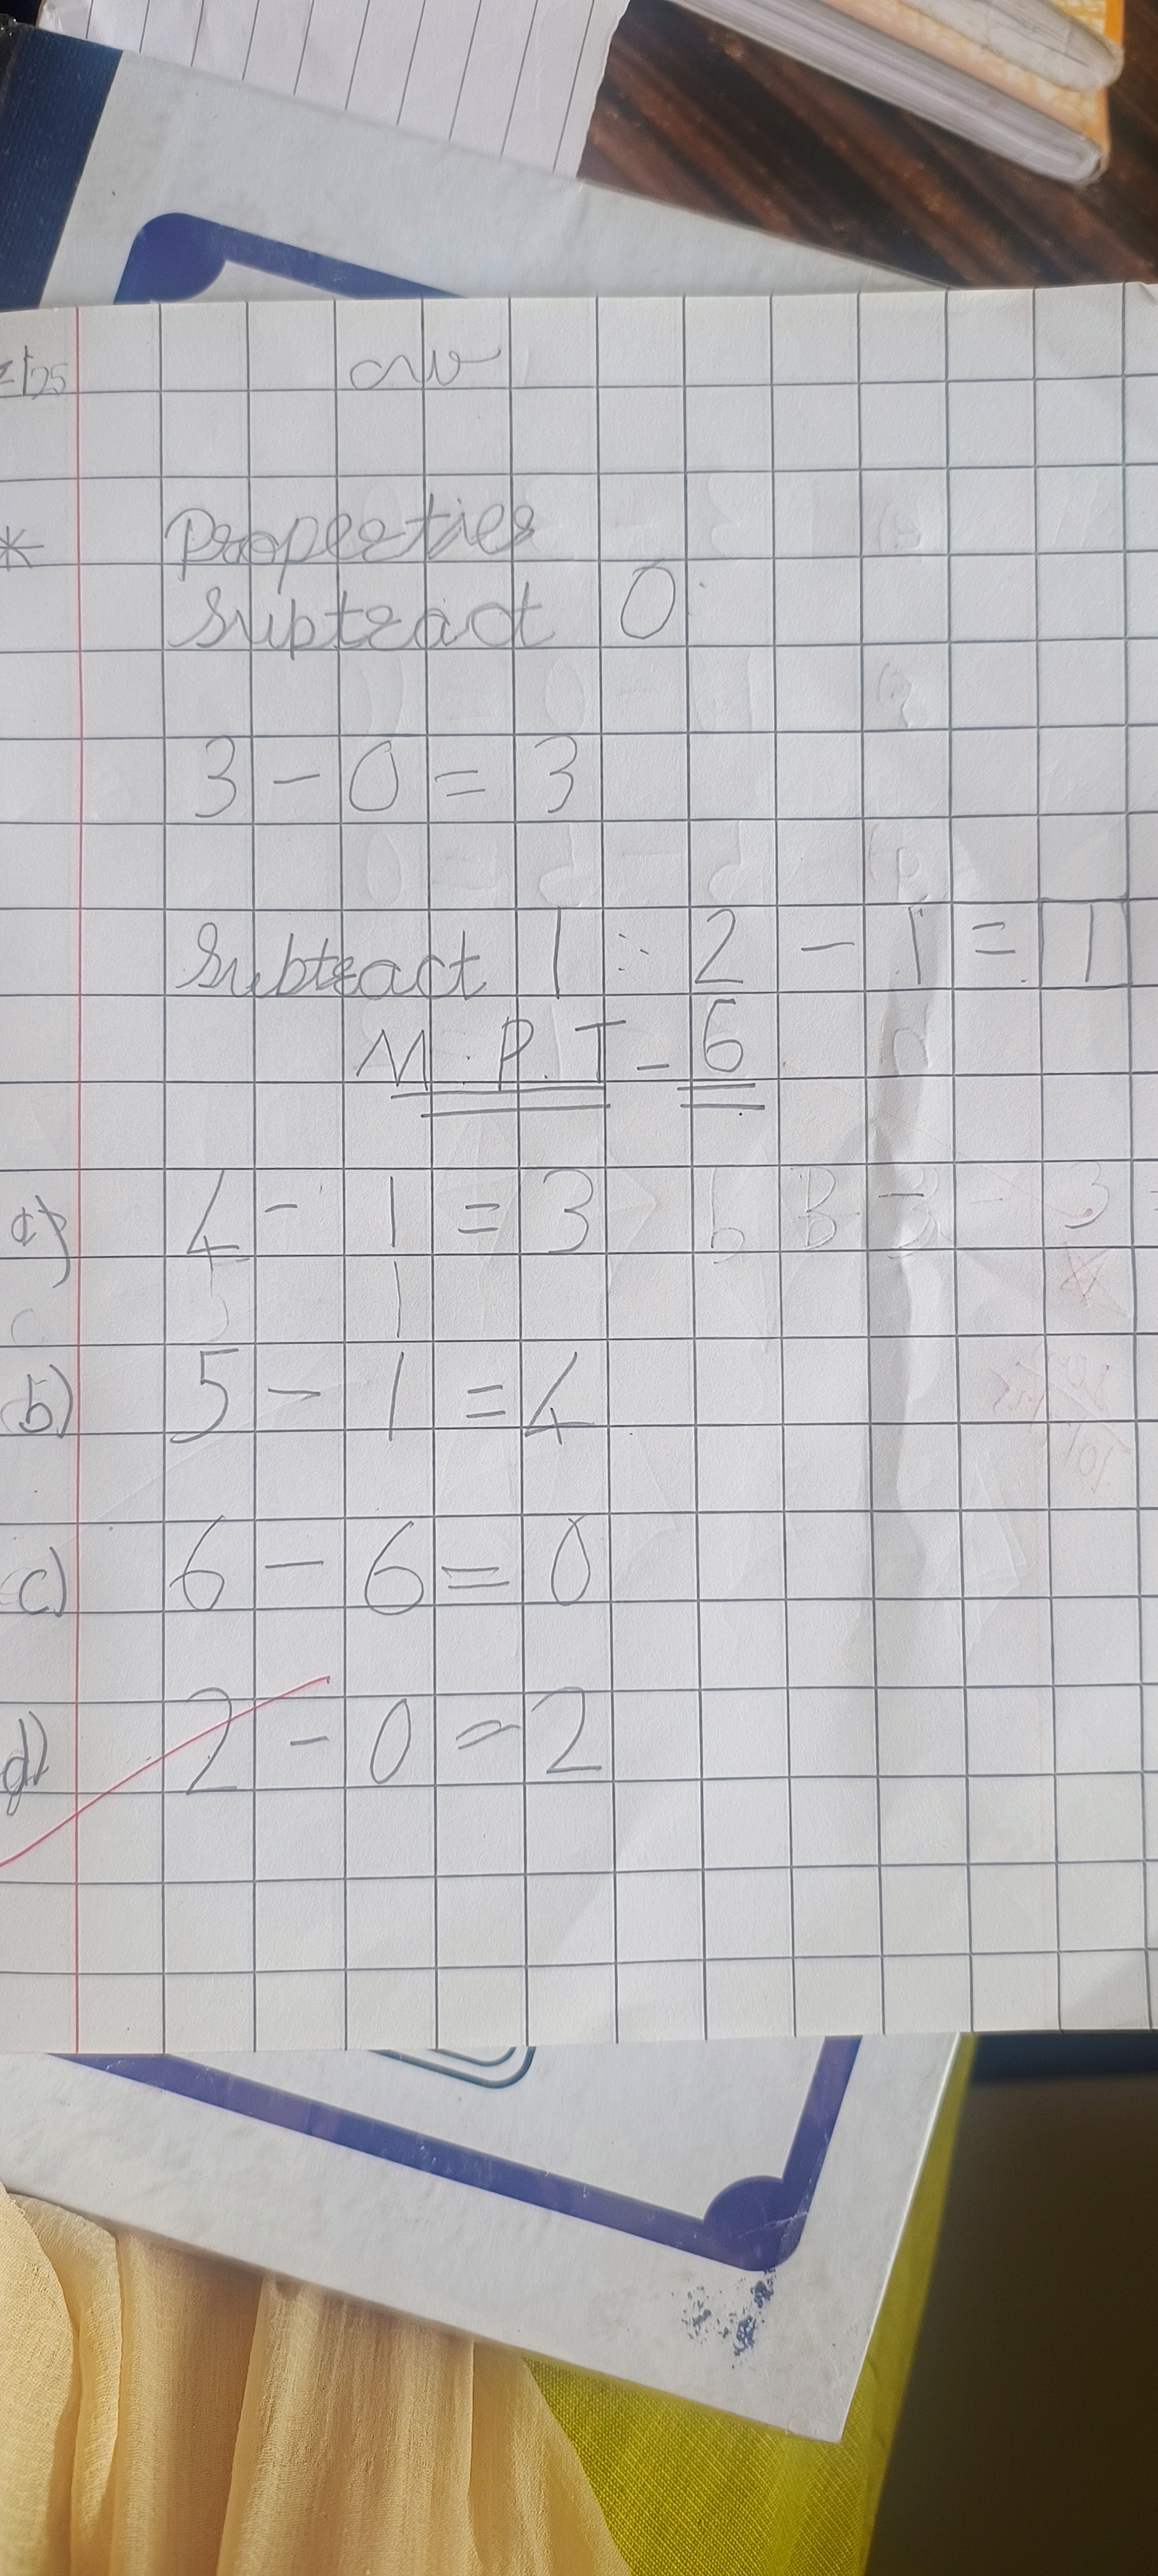 cw
* Properties
Subtract 0
3 - 0 = 3
Subtract 1 : 2 - 1 = 1
M.P.T - 6
a) 4 - 1 = 3
b) 5 - 1 = 4
c) 6 - 6 = 0
d) 2 - 0 = 2